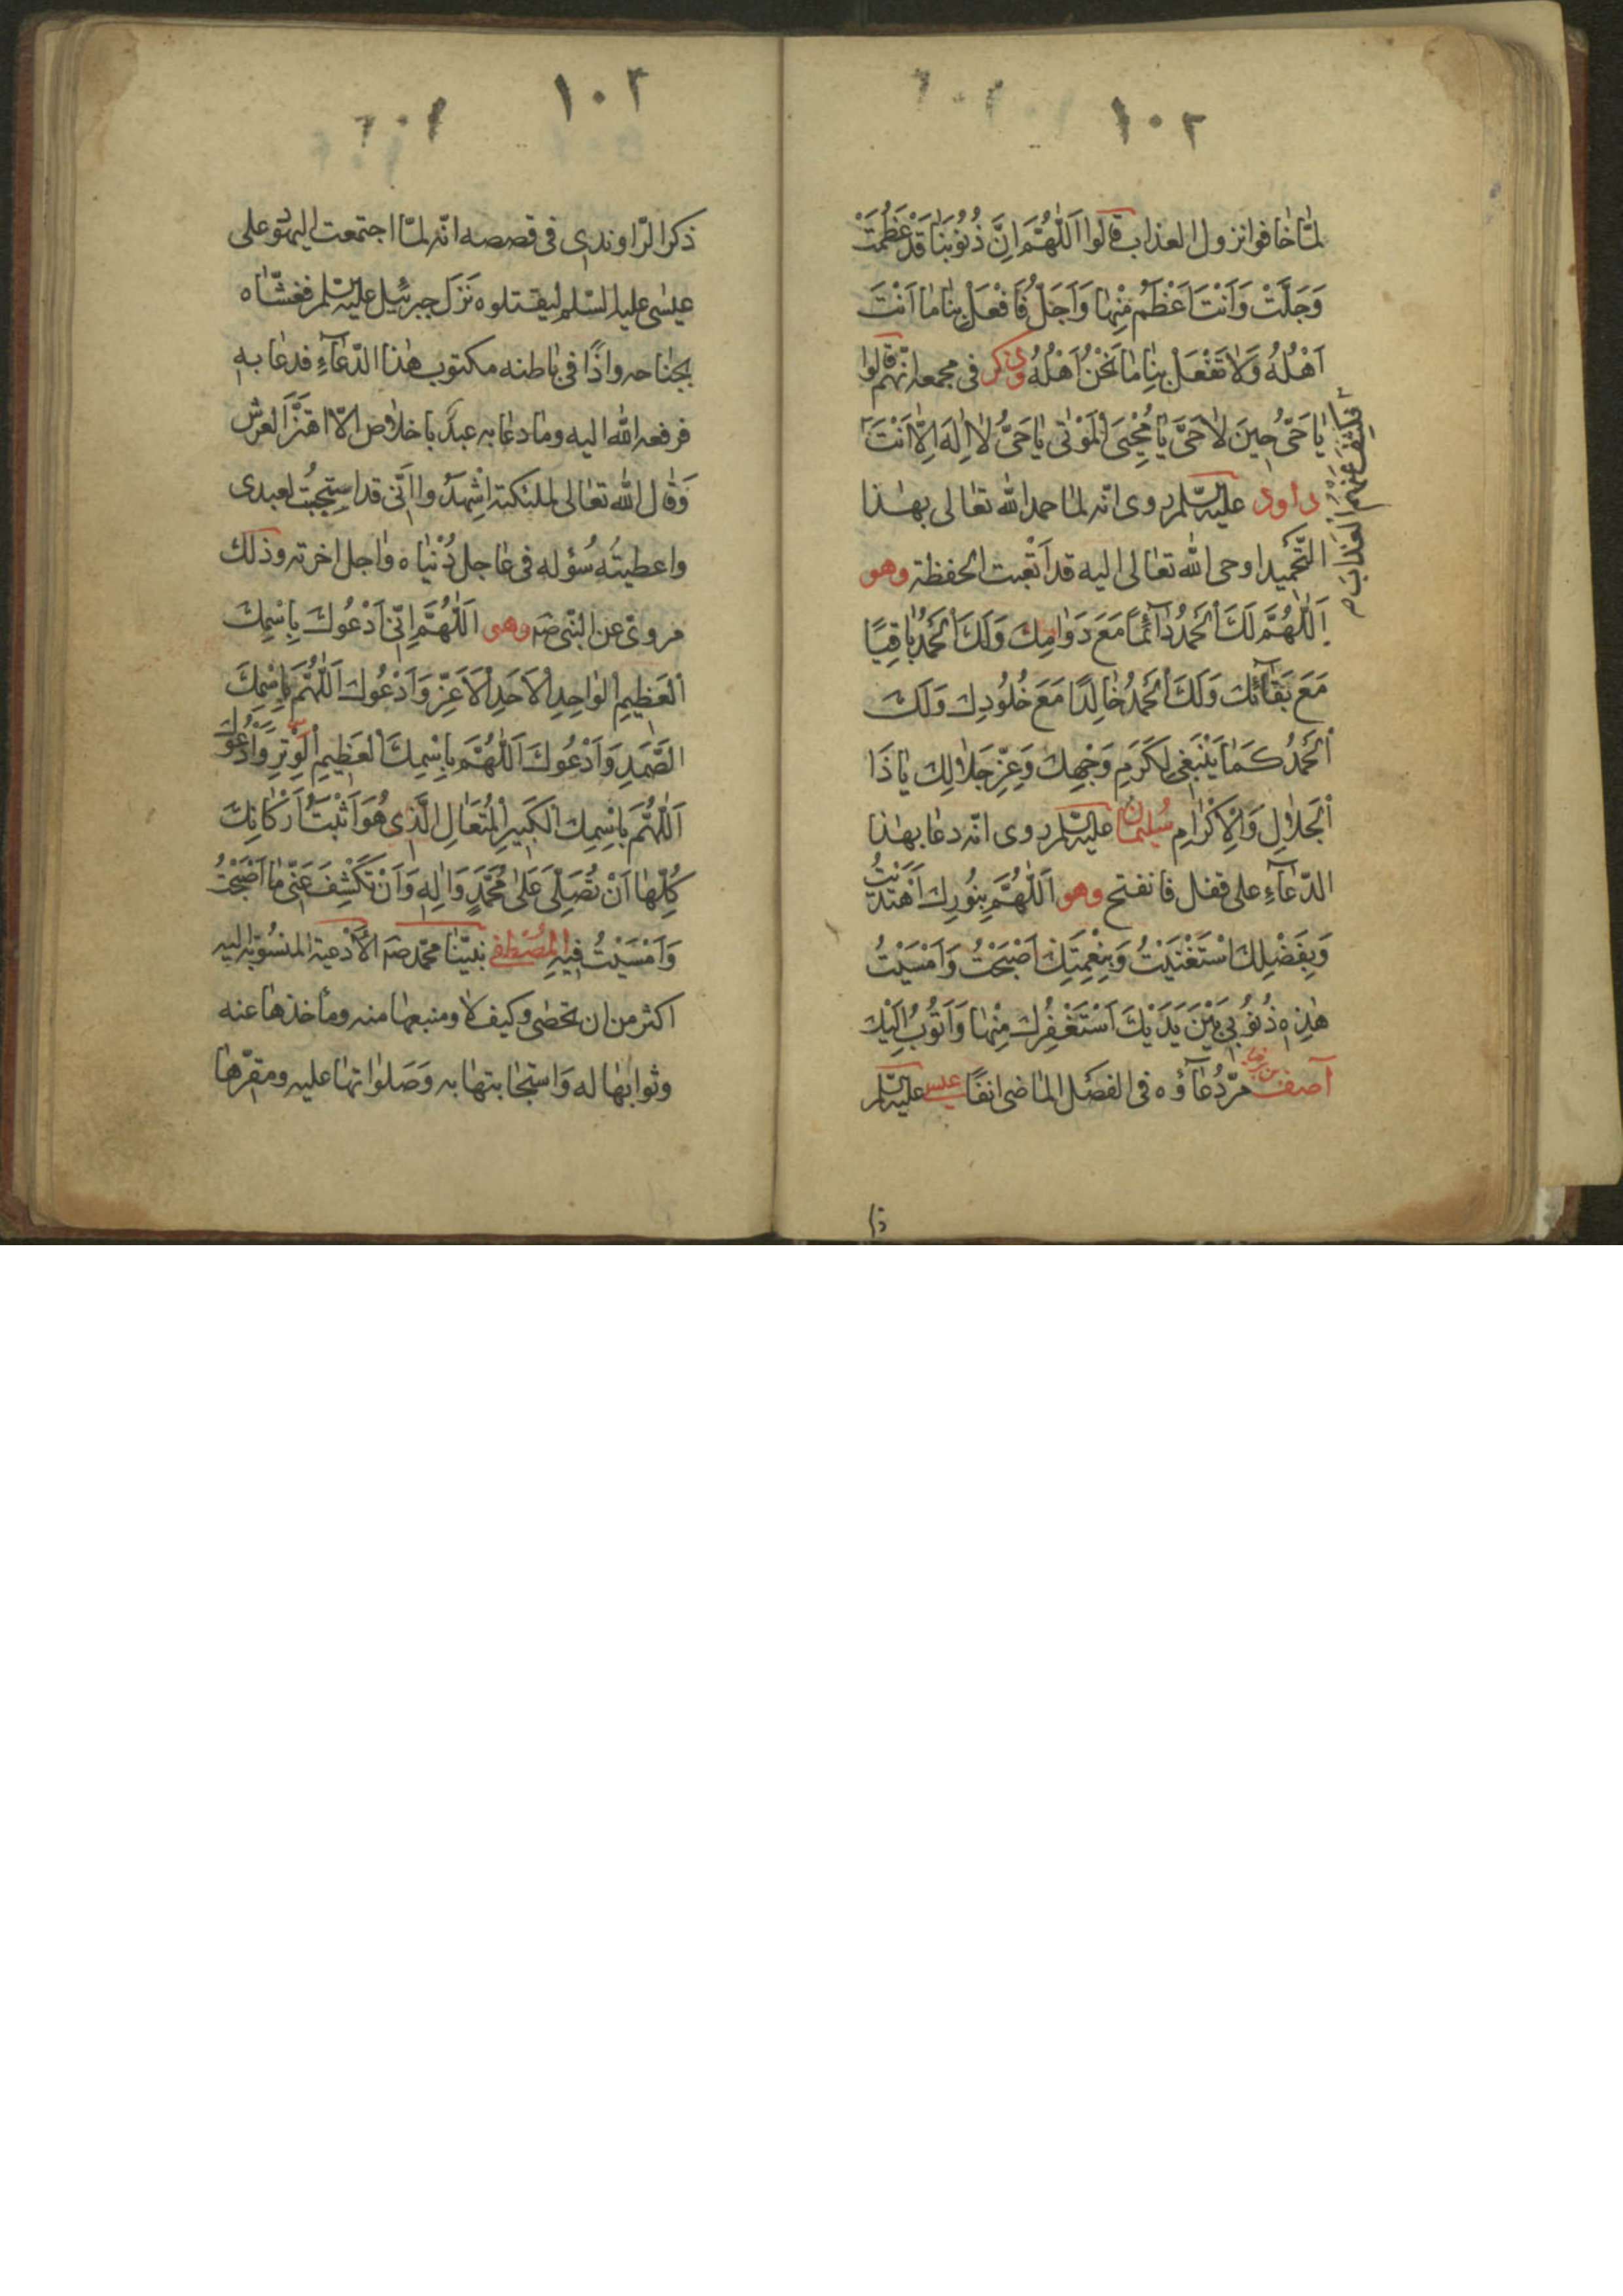 ١٠٢
لمّا خافوا نزول العذاب قالوا اَللّٰهُمَّ اِنَّ ذُنُوْبَنٰا قَدْ عَظُمَتْ
وَجَلَّتْ وَاَنْتَ اَعْظَمُ مِنْهٰا وَاَجَلُّ فَافْعَلْ بِنٰا مٰا اَنْتَ
اَهْلُهُ وَلاٰ تَفْعَلْ بِنٰا مٰا نَحْنُ اَهْلُهُ وذكر فى مجمعه انّهم قالوا
يٰا حَىُّ حِينَ لاٰ حَىَّ يٰا مُحْيِىَ الْمَوْتىٰ يٰا حَىُّ لاٰ اِلٰهَ اِلاّٰ اَنْتَ
فكشف عنهم العذاب
داود عليه السّلم روى انّه لما حمد اللّٰه تعٰالى بهٰذا
التّحميد اوحى اللّٰه تعٰالى اليه قد اَتْعبت الحفظة وهو
اَللّٰهُمَّ لَكَ اَلْحَمْدُ دٰآئِمًا مَعَ دَوٰامِكَ وَلَكَ اَلْحَمْدُ بٰاقِيًا
مَعَ بَقٰآئِكَ وَلَكَ اَلْحَمْدُ خٰالِدًا مَعَ خُلُودِكَ وَلَكَ
اَلْحَمْدُ كَمٰا يَنْبَغِى لِكَرَمِ وَجْهِكَ وَعِزِّ جَلاٰلِكَ يٰا ذَا
اَلْجَلاٰلِ وَاَلْاِكْرٰامِ سُليمان عليه السّلم روى انّه دعٰا بهٰذا
الدّعٰآءِ على قفل فانفتح وهو اَللّٰهُمَّ بِنُورِكَ اَهْتَدَيْتُ
وَبِفَضْلِكَ اسْتَغْنَيْتُ وَبِنِعْمَتِكَ اَصْبَحْتُ وَاَمْسَيْتُ
هٰذِهِ ذُنُوبِى بَيْنَ يَدَيْكَ اَسْتَغْفِرُكَ مِنْهٰا وَاَتُوبُ اِلَيْكَ
آصف بن برخيا مرّ دُعٰآؤه فى الفصل المٰاضى انفًا عيسى عليه السّلم
١٠٢
ذكر الرّاوندى فى قصصه انّه لمّا اجتمعت اليهود على
عيسٰى عليه السّلم ليقتلوه نَزَل جبرئيل عليه السّلم فغشّٰاه
بجنٰاحه واذًا فى بٰاطنه مكتوب هٰذا الدّعٰآءِ فدعٰا به
فرفعه اللّٰه اليه ومٰا دعٰا به عبدٌ باخلاٰص الاّٰ اهتَزَّ العرش
وَقٰال اللّٰه تعٰالى لملئكته اشهدُوا انّى قد استجبتُ لعبدى
واعطيتُه سُؤله فى عٰاجل دُنْيٰاه وٰاجل اخرته وذلك
مروىّ عن النّبى صَه وهو اَللّٰهُمَّ اِنّى اَدْعُوكَ بِاسْمِكَ
اَلْعَظِيمِ الْوٰاحِدِ الْاَحَدِ الْاَعَزِّ وَاَدْعُوكَ اَللّٰهُمَّ بِاسْمِكَ
الصَّمَدِ وَاَدْعُوكَ اَللّٰهُمَّ بِاسْمِكَ اَلْعَظِيمِ الْوِتْرِ وَاَدْعُوكَ
اَللّٰهُمَّ بِاسْمِكَ الْكَبِيرِ الْمُتَعٰالِ الَّذِى هُوَ اَثْبَتُّ اَرْكٰانِكَ
كُلِّهٰا اَنْ تُصَلِّىَ عَلىٰ مُحَمَّدٍ وَاٰلِهِ وَاَنْ تَكْشِفَ عَنّى مٰا اَصْبَحْتُ
وَاَمْسَيْتُ فِيهِ المصطفى نبيّنٰا محمّد صَه الأدعية المنسُوبة اليه
اكثر من ان تحصٰى وكيف لاٰ ومنبعهٰا منه ومأخذهٰا عنه
وثوابهٰا له وَاستجٰابتهٰا به وَصَلوٰاتهٰا عليه ومقرّهٰا